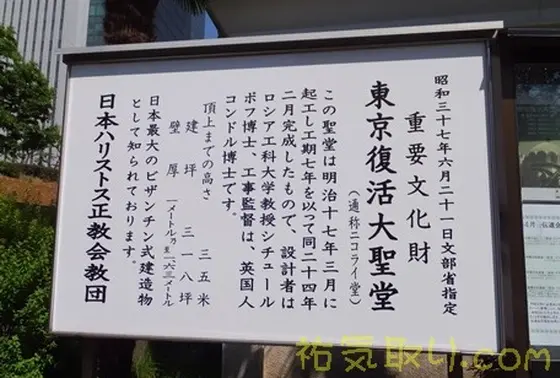 昭和三十七年六月二十一日文部省指定
重要文化財
東京復活大聖堂
（通称ニコライ堂）
この聖堂は明治十七年三月に
起工し工期七年を以って同二十四年
二月完成したもので、設計者は
ロシア工科大学教授シチュール
ポフ博士、工事監督は、英国人
コンドル博士です。
頂上までの高さ　三五米
建坪　三一八坪
壁厚　一メートル乃至一・六三メートル
日本最大のビザンチン式建造物
として知られております。
日本ハリストス正教会教団
祐気取り.com